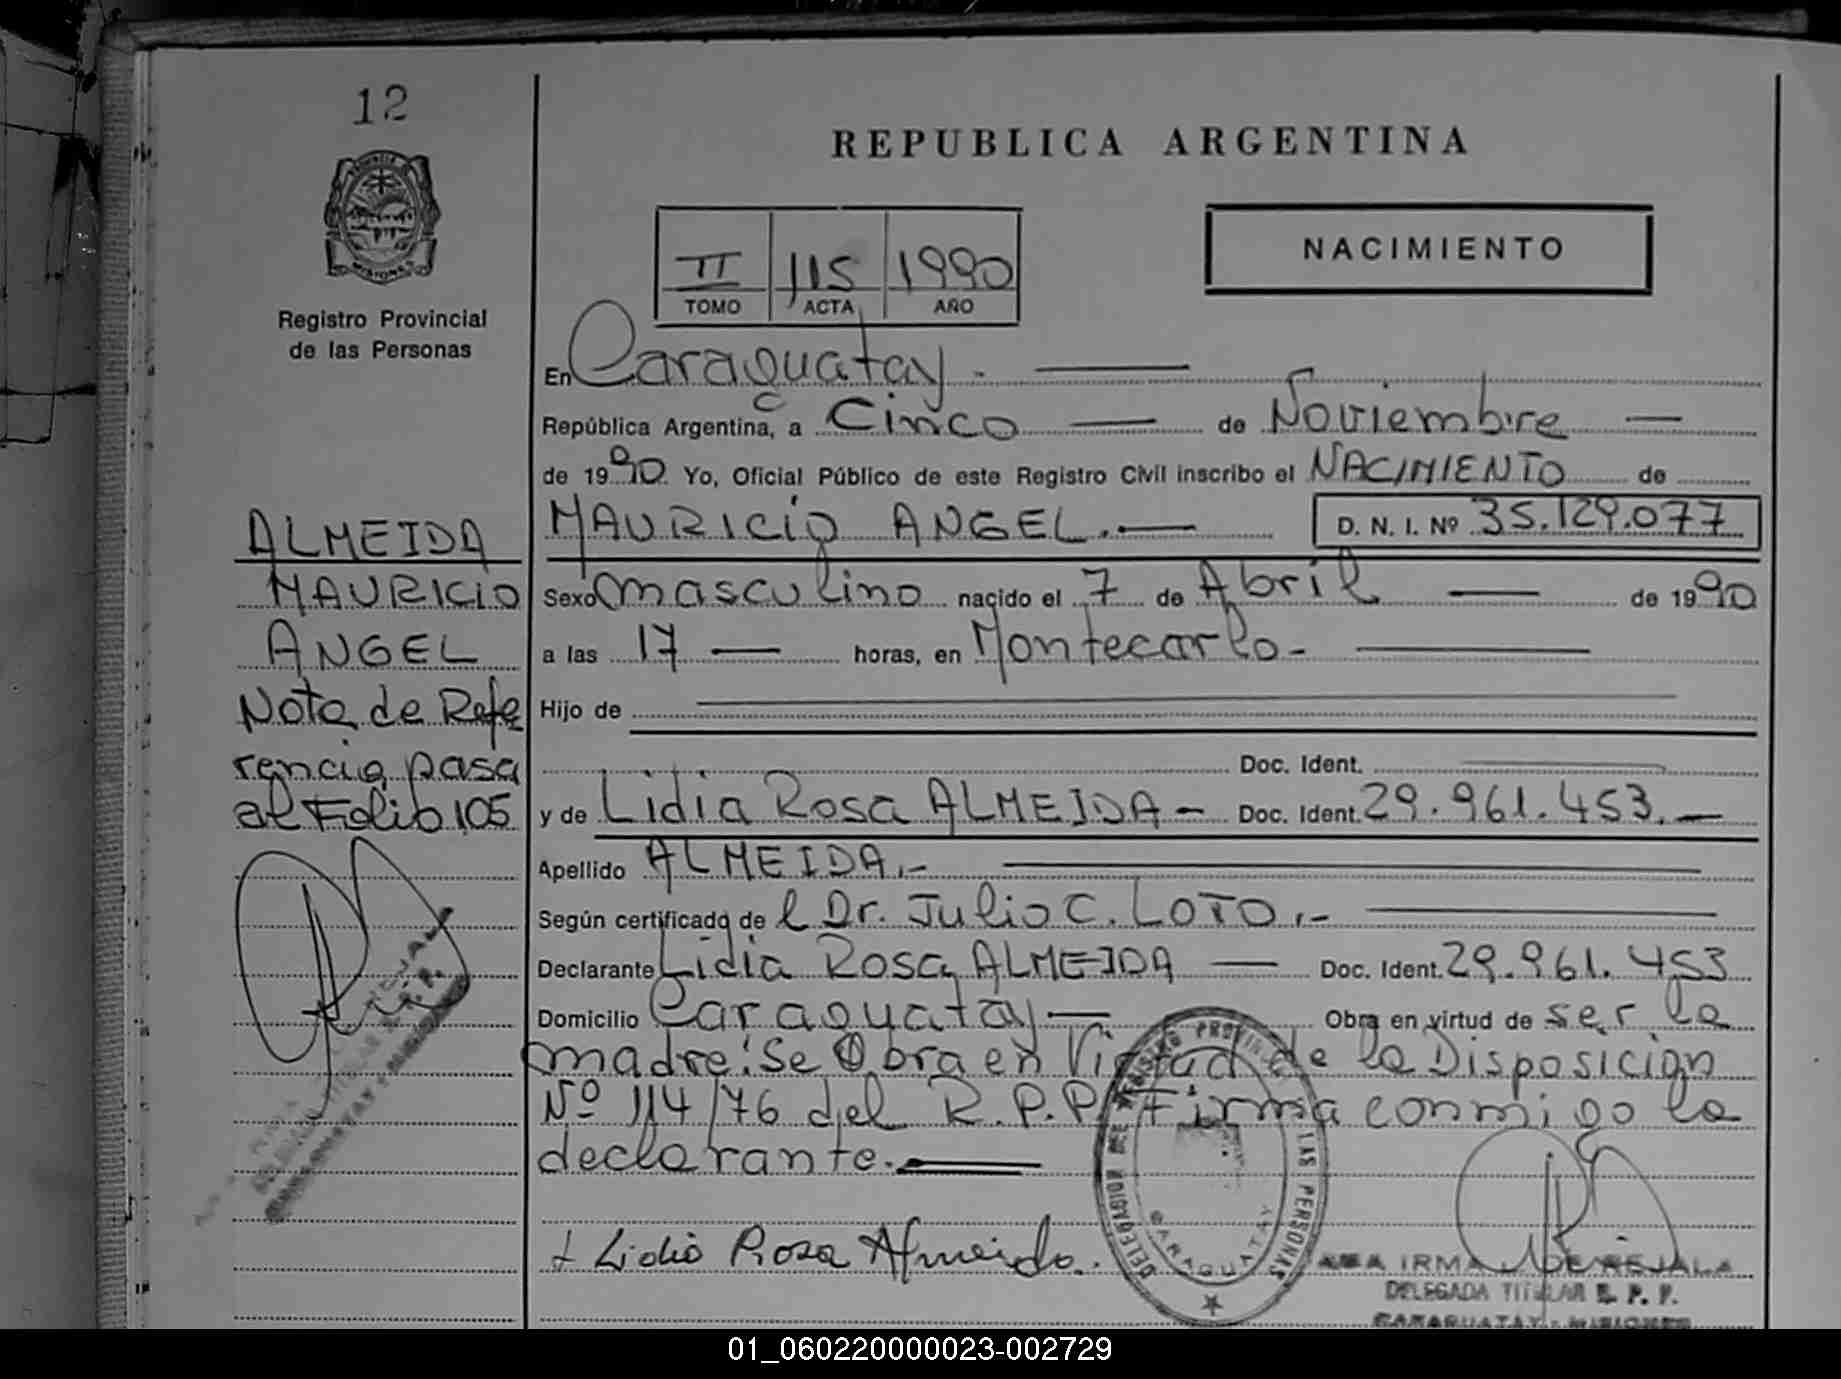 12
PROVINCIA
MISIONES
Registro Provincial
de las Personas
ALMEIDA
MAURICIO
ANGEL
Nota de Refe
rencia pasa
al Folio 105
REPUBLICA ARGENTINA
NACIMIENTO
II 115 1990
TOMO ACTA AÑO
En Caraguatay.-
República Argentina, a Cinco — de Noviembre —
de 1990 Yo, Oficial Público de este Registro Civil inscribo el NACIMIENTO de
MAURICIO ANGEL.— D. N. I. Nº 35.129.077
Sexo masculino nacido el 7 de Abril — de 1990
a las 17 — horas, en Montecarlo-
Hijo de
Doc. Ident.
y de Lidia Rosa ALMEIDA - Doc. Ident. 29.961.453.—
Apellido ALMEIDA.-
Según certificado de l Dr. Julio C. LOTO.-
Declarante Lidia Rosa ALMEIDA — Doc. Ident. 29.961.453
Domicilio Caraguatay— Obra en virtud de ser la
madre: Se Obra en Virtud de la Disposición
Nº 114/76 del R.P.P. Firma conmigo la
declarante.
Lidia Rosa Almeida.
DELEGACION DEL REGISTRO PROVINCIAL DE LAS PERSONAS
CARAGUATAY
ANA IRMA DE REJALA
DELEGADA TITULAR R. P. P.
CARAGUATAY - MISIONES
01_060220000023-002729